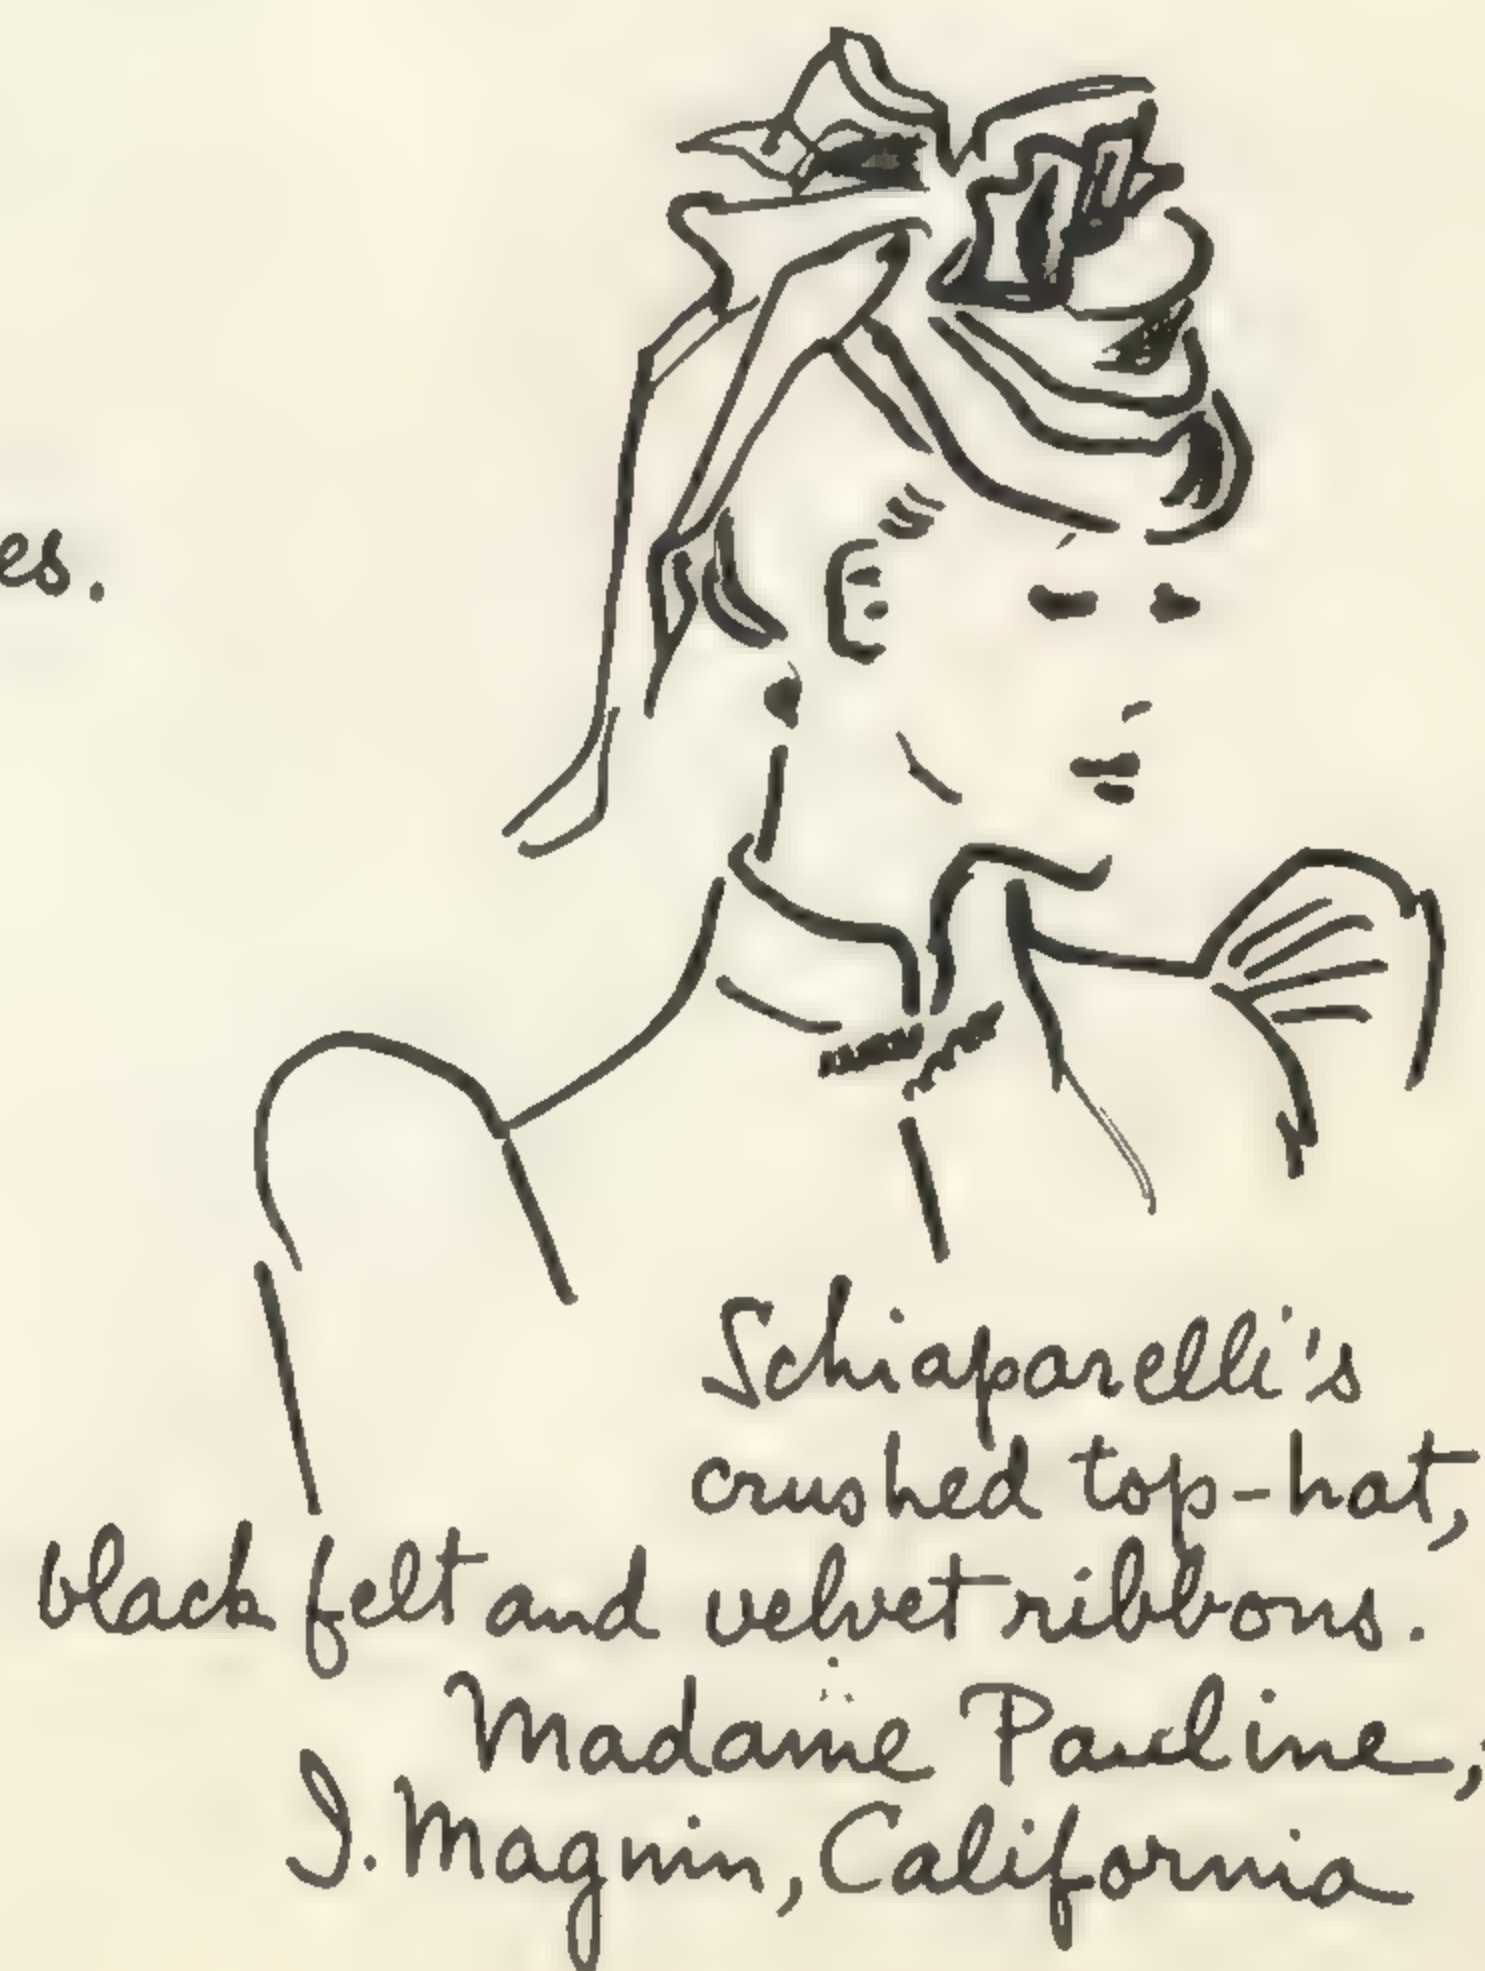 es.
Schiaparelli's
crushed top-hat,
black felt and velvet ribbons.
Madame Pauline,
I. Magnin, California